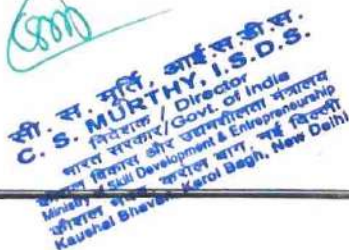 सी. स. मूर्ति, आई.स.डी.स.
C. S. MURTHY, I.S.D.S.
निदेशक / Director
भारत सरकार/Govt. of India
कौशल विकास और उद्यमशीलता मंत्रालय
Ministry of Skill Development & Entrepreneurship
कौशल भवन, करोल बाग, नई दिल्ली
Kaushal Bhavan, Karol Bagh, New Delhi